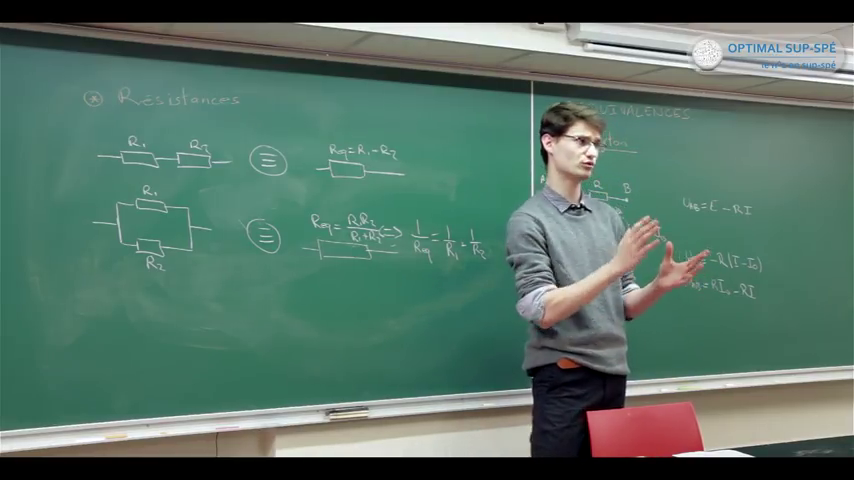 OPTIMAL SUP-SPÉ
le n°1 en sup-spé
* Résistances
R₁ R₂ ≡ Req = R₁ + R₂
R₁
R₂
≡ Req = R₁R₂ / R₁+R₂ <=> 1/Req = 1/R₁ + 1/R₂
UIVALENCES
R B
U_AB = E - RI
- R(I - I₀)
= RI₀ - RI